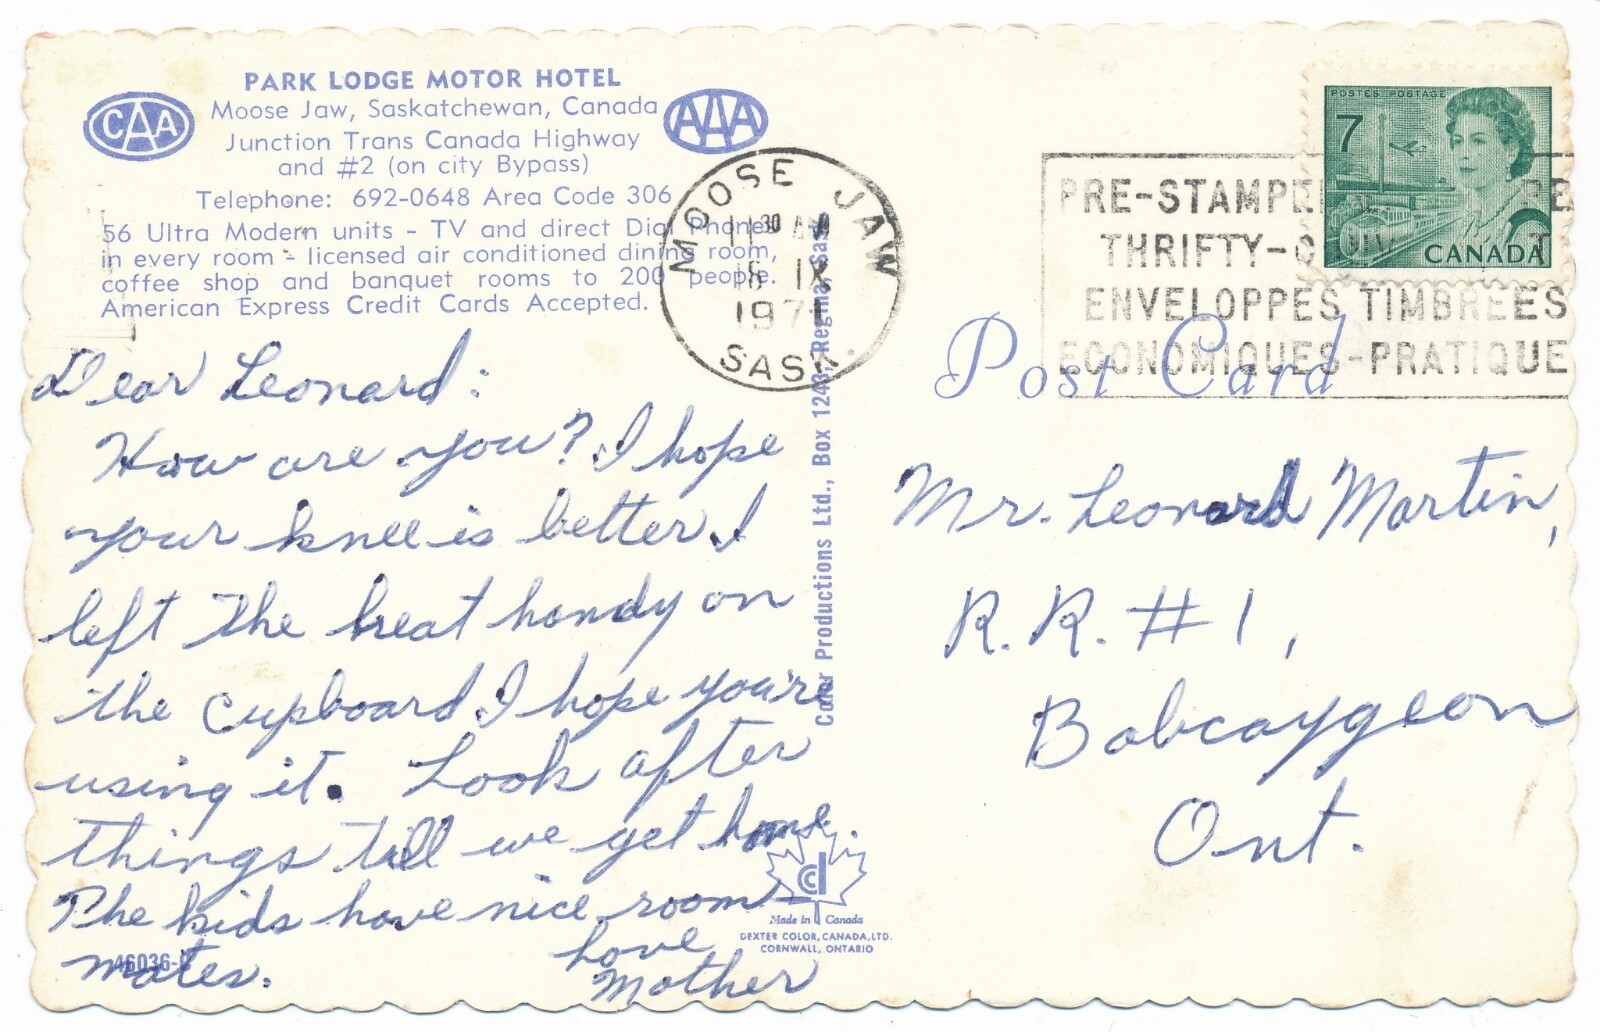 PARK LODGE MOTOR HOTEL
CAA
Moose Jaw, Saskatchewan, Canada
AAA
Junction Trans Canada Highway
and #2 (on city Bypass)
Telephone: 692-0648 Area Code 306
56 Ultra Modern units - TV and direct Dial Phone
in every room - licensed air conditioned dining room,
coffee shop and banquet rooms to 200 people.
American Express Credit Cards Accepted.
MOOSE JAW
11 30 AM
18 IX
1971
SASK.
POSTES POSTAGE
7
CANADA
PRE-STAMPE
THRIFTY-
ENVELOPPES TIMBREES
ECONOMIQUES-PRATIQUE
Post Card
Dear Leonard:
How are you? I hope
your knee is better. I
left the heat handy on
the cupboard. I hope you're
using it. Look after
things till we get home.
The kids have nice room-
mates.
Love
Mother
46036-
Color Productions Ltd., Box 1243, Regina, Sask.
Mr. Leonard Martin,
R.R. #1,
Bobcaygeon
Ont.
cd
Made in Canada
DEXTER COLOR, CANADA, LTD.
CORNWALL, ONTARIO